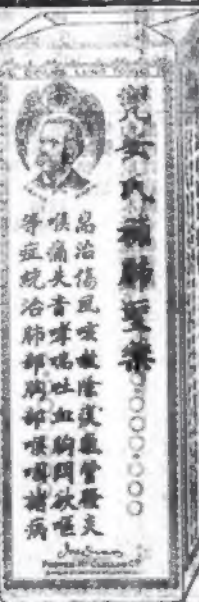 兜安氏補肺聖藥
專治傷風咳嗽除痰氣管發炎
喉痛失音哮喘吐血胸悶欲嘔
等症統治肺部胸部喉嚨諸病
FOSTER McCLELLAN Co